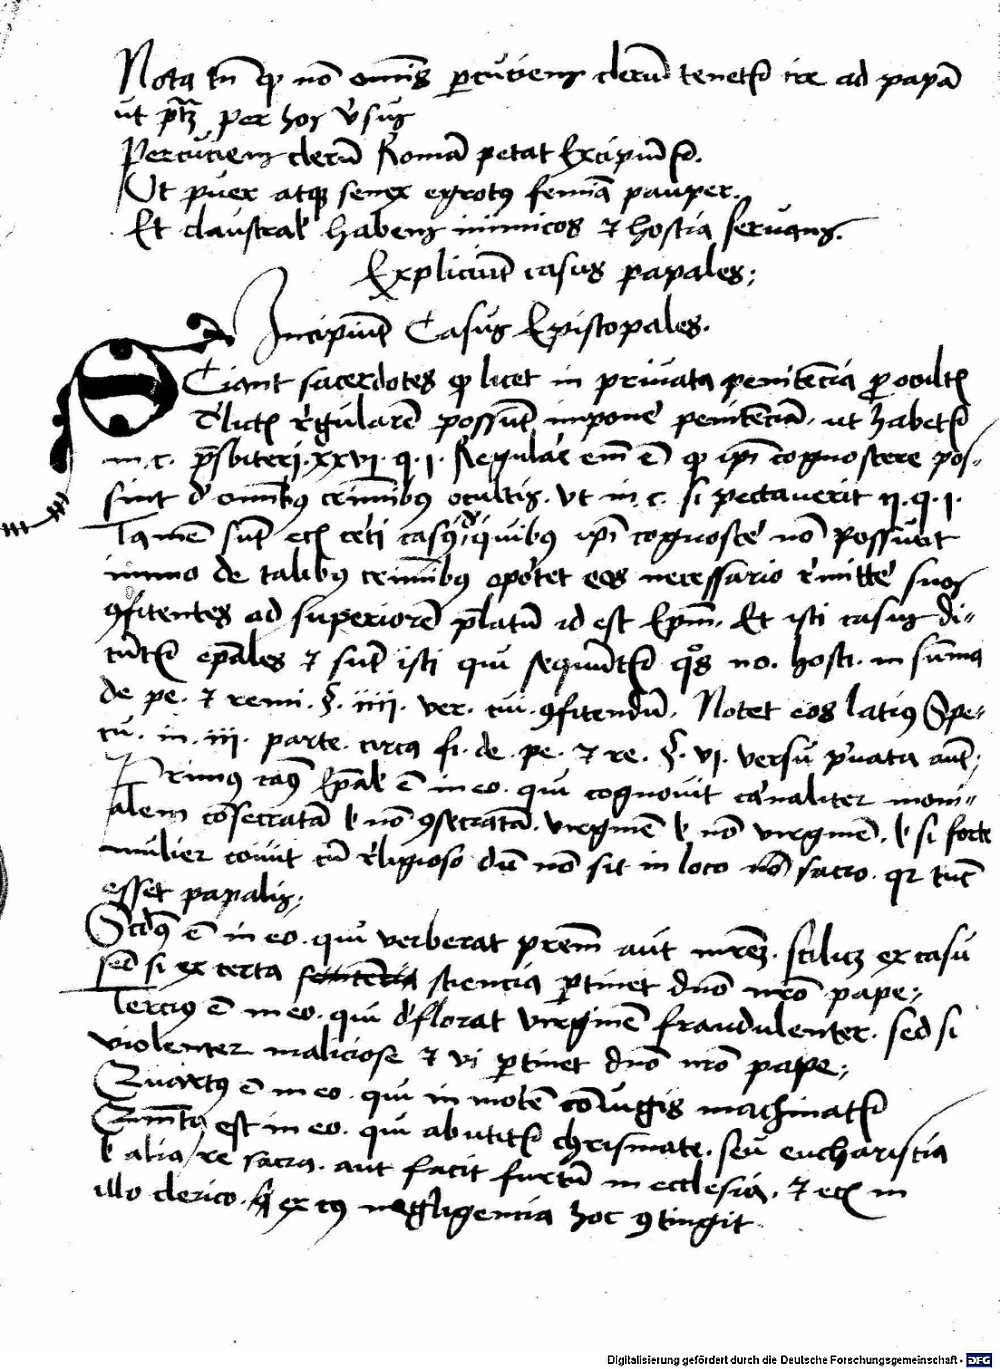 Nota tn̄ ꝙ nō om̄is ꝑcuciens clericū tenet̄ ire ad papā
ut ptꝫ per hos v̄sus
Percuciens clericū Romā petat Excipiunt̄.
Ut puer atqꝫ senex egrotꝰ femīa pauper.
Et claustral̄ habens inimicos ⁊ hostia seruans.
Expliciūt casus papales;
Incipiūt Casus Ep̄iscopales.
SCiant sacerdotes ꝙ licet in priuata penitēcia ꝓ occult̄
delict̄ regularē possūt impone̕ penitēciā. ut habet̄
in. c. pr̄sbiteri. xxvi. q. i. Regulāe em̄ ē ꝙ ip̄i cognoscere pos-
sint d̕ om̄ibꝰ crim̄ibꝰ ocultis. Ut in. c. si peccauerit ii. q. i.
Tamē sūt ecī cēti casꝰ de quibꝰ ip̄i cognosce̕ nō possunt
immo de talibꝰ crim̄ibꝰ oportet eos necessario remitte̕ suos
ꝯfitentes ad superiorē p̄latū id est Ep̄m. Et isti casus di-
cūt̄ ep̄ales ⁊ sūt isti qui sequūt̄ quos no. hosti. in sūma
de pe. ⁊ remi. §. iiii. ver. cui. ꝯfitendū. Notet eos latiꝰ Spe-
cu. in. iii. parte. circa fi. de. pe. ⁊ re. §. vi. versu p̄uata aut̄;
Primus casꝰ Ep̄al̄ ē in eo. qui cognouit carnaliter moni-
alem cōsecratā ł nō ꝯsecratā. virginē ł nō virginē. ł si forte
mulier coiuit cū religioso dū nō sit in loco sacro. qr tūc
esset papalis;
Scd̄ꝰ ē in eo. qui verberat p̄rem aut m̄rem. scilicꝫ ex casu
sed si ex certa sciencia ꝑtinet dn̄o nr̄o pape;
Tercius ē in eo. qui d̕florat virginē fraudulenter. sed si
violenter maliciose ⁊ vi ꝑtinet dn̄o nr̄o pape;
Quartꝰ ē in eo. qui in mortē cōiugis machinat̄
Quinta est in eo. qui abutit̄ chrismate. seu eucharistia
ł alia re sacra. aut facit furtū in ecclesia. ⁊ ecī in
illo clerico. qͥ ex cꝰ negligencia hoc ꝯtingit
Digitalisierung gefördert durch die Deutsche Forschungsgemeinschaft - DFG